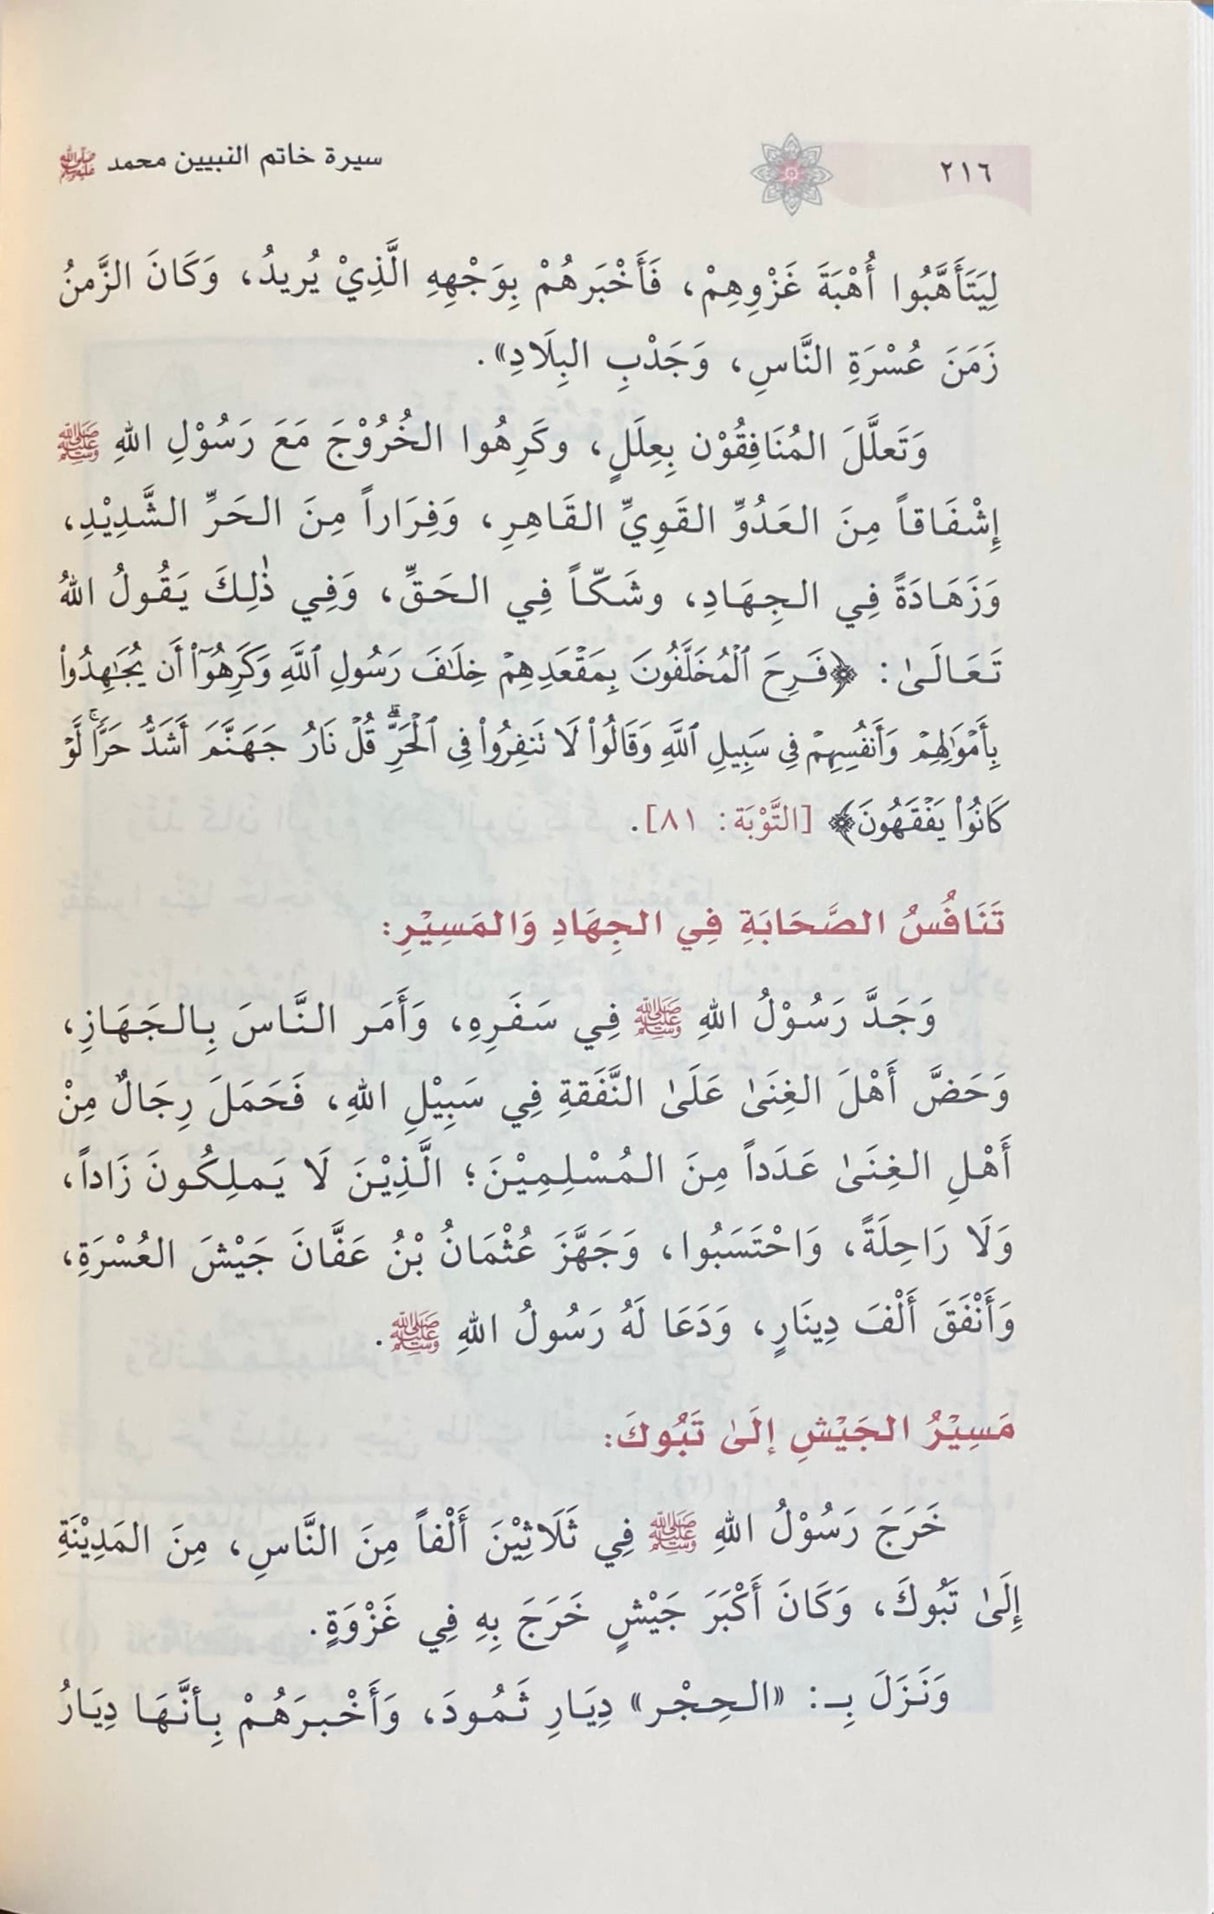 ٢١٦
سيرة خاتم النبيين محمد ﷺ
لِيَتَأَهَّبُوا أُهْبَةَ غَزْوِهِمْ، فَأَخْبَرهُمْ بِوَجْهِهِ الَّذِيْ يُريدُ، وَكَانَ الزَّمنُ
زَمَنَ عُسْرَةِ النَّاسِ، وَجَدْبِ البِلَادِ».
وَتَعلَّلَ المُنَافِقُوْن بِعِلَلٍ، وكَرِهُوا الخُرُوْجَ مَعَ رَسُوْلِ اللهِ ﷺ
إِشْفَاقاً مِنَ العَدُوِّ القَوِيِّ القَاهِرِ، وَفِرَاراً مِنَ الحَرِّ الشَّدِيْدِ،
وَزَهَادَةً فِي الجِهَادِ، وشَكّاً فِي الحَقِّ، وَفِي ذٰلِكَ يَقُولُ اللهُ
تَعَالَىٰ: ﴿فَرِحَ ٱلْمُخَلَّفُونَ بِمَقْعَدِهِمْ خِلَٰفَ رَسُولِ ٱللَّهِ وَكَرِهُوٓاْ أَن يُجَٰهِدُواْ
بِأَمْوَٰلِهِمْ وَأَنفُسِهِمْ فِي سَبِيلِ ٱللَّهِ وَقَالُواْ لَا تَنفِرُواْ فِي ٱلْحَرِّۗ قُلْ نَارُ جَهَنَّمَ أَشَدُّ حَرًّاۚ لَّوْ
كَانُواْ يَفْقَهُونَ﴾ [التَّوْبَة: ٨١].
تَنَافُسُ الصَّحَابَةِ فِي الجِهَادِ وَالمَسِيْرِ:
وَجَدَّ رَسُوْلُ اللهِ ﷺ فِي سَفَرِهِ، وَأَمَر النَّاسَ بِالجَهَازِ،
وَحَضَّ أَهْلَ الغِنَىٰ عَلَىٰ النَّفَقةِ فِي سَبِيْلِ اللهِ، فَحَمَلَ رِجَالٌ مِنْ
أَهْلِ الغِنَىٰ عَدَداً مِنَ المُسْلِمِيْنَ؛ الَّذِيْنَ لَا يَملِكُونَ زَاداً،
وَلَا رَاحِلَةً، وَاحْتَسَبُوا، وَجَهَّزَ عُثْمَانُ بْنُ عَفَّانَ جَيْشَ العُسْرَةِ،
وَأَنْفَقَ أَلْفَ دِينَارٍ، وَدَعَا لَهُ رَسُولُ اللهِ ﷺ.
مَسِيْرُ الجَيْشِ إلَىٰ تَبُوكَ:
خَرَجَ رَسُوْلُ اللهِ ﷺ فِي ثَلَاثِيْنَ أَلْفاً مِنَ النَّاسِ، مِنَ المَدِيْنَةِ
إِلَىٰ تَبُوكَ، وَكَانَ أَكْبَرَ جَيْشٍ خَرَجَ بِهِ فِي غَزْوَةٍ.
وَنَزَلَ بِـ: «الحِجْر» دِيَارِ ثَمُودَ، وَأَخْبرَهُمْ بِأنَّهَا دِيَارُ